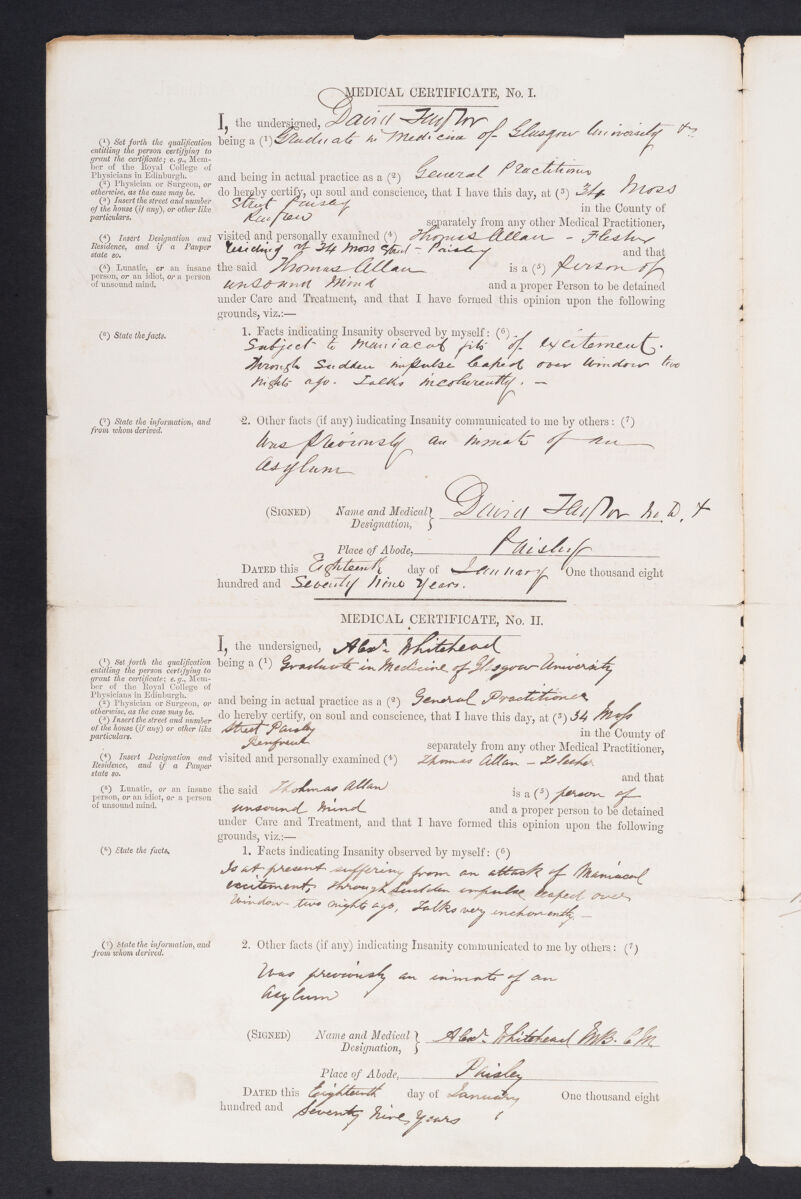 MEDICAL CERTIFICATE, No. I.
I, the undersigned, David Taylor
being a (1) Graduate in Medicine of Glasgow University &c
(1) Set forth the qualification
entitling the person certifying to
grant the certificate; e.g., Mem-
ber of the Royal College of
Physicians in Edinburgh.
and being in actual practice as a (2) General Practitioner
(2) Physician or Surgeon, or
otherwise, as the case may be.
do hereby certify, on soul and conscience, that I have this day, at (3) 34 Moss
(3) Insert the street and number
of the house (if any), or other like
particulars.
Street Paisley in the County of
Renfrew separately from any other Medical Practitioner,
(4) Insert Designation and
Residence, and if a Pauper
state so.
visited and personally examined (4) Thomas Allan - Flesher
residing at 34 Moss Street - Paisley and that
(5) Lunatic, or an insane
person, or an idiot, or a person
of unsound mind.
the said Thomas Allan is a (5) person of
unsound mind and a proper Person to be detained
under Care and Treatment, and that I have formed this opinion upon the following
grounds, viz.:—
(6) State the facts.
1. Facts indicating Insanity observed by myself: (6)
Subject to maniacal fits of excitement.
through sudden impulse leaped over window two
nights ago. Talks incoherently. —
(7) State the information, and
from whom derived.
2. Other facts (if any) indicating Insanity communicated to me by others: (7)
Was previously an inmate of an
asylum
(SIGNED) Name and Medical
Designation, } David Taylor M.D. &
Place of Abode, Paisley
DATED this Eighteenth day of January One thousand eight
hundred and Seventy nine Years.
MEDICAL CERTIFICATE, No. II.
I, the undersigned, Alexr. Whitehead
(1) Set forth the qualification
entitling the person certifying to
grant the certificate; e.g., Mem-
ber of the Royal College of
Physicians in Edinburgh.
being a (1) Graduate in Medicine of Glasgow University
(2) Physician or Surgeon, or
otherwise, as the case may be.
and being in actual practice as a (2) General Practitioner
(3) Insert the street and number
of the house (if any) or other like
particulars.
do hereby certify, on soul and conscience, that I have this day, at (3) 34 Moss
Street Paisley in the County of
Renfrew separately from any other Medical Practitioner,
(4) Insert Designation and
Residence, and if a Pauper
state so.
visited and personally examined (4) Thomas Allan - Flesher
and that
(5) Lunatic, or an insane
person, or an idiot, or a person
of unsound mind.
the said Thohmas Allan is a (5) person of
unsound mind and a proper person to be detained
under Care and Treatment, and that I have formed this opinion upon the following
grounds, viz:—
(6) State the facts.
1. Facts indicating Insanity observed by myself: (6)
Is at present suffering from an attack of Maniacal
excitement, through sudden impulse leaped over
window two nights ago, Talks very incoherently —
(7) State the information, and
from whom derived.
2. Other facts (if any) indicating Insanity communicated to me by others: (7)
Was previously an inmate of an
Asylum
(SIGNED) Name and Medical
Designation, } Alexr. Whitehead M.B. C.M.
Place of Abode, Paisley
DATED this Eighteenth day of January One thousand eight
hundred and Seventy Nine Years